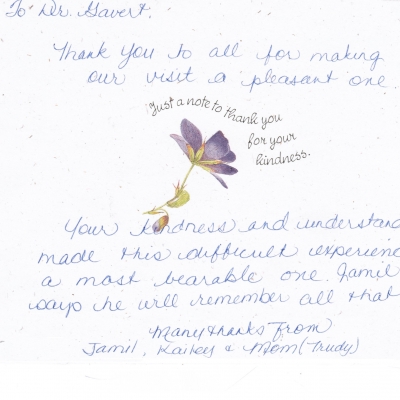 To Dr. Gavert,
Thank you to all for making
our visit a pleasant one
Just a note to thank you
for your
kindness.
Your kindness and understand
made this difficult experienc
a most bearable one. Jamil
says he will remember all that
Many thanks from
Jamil, Kailey & Mom (Trudy)